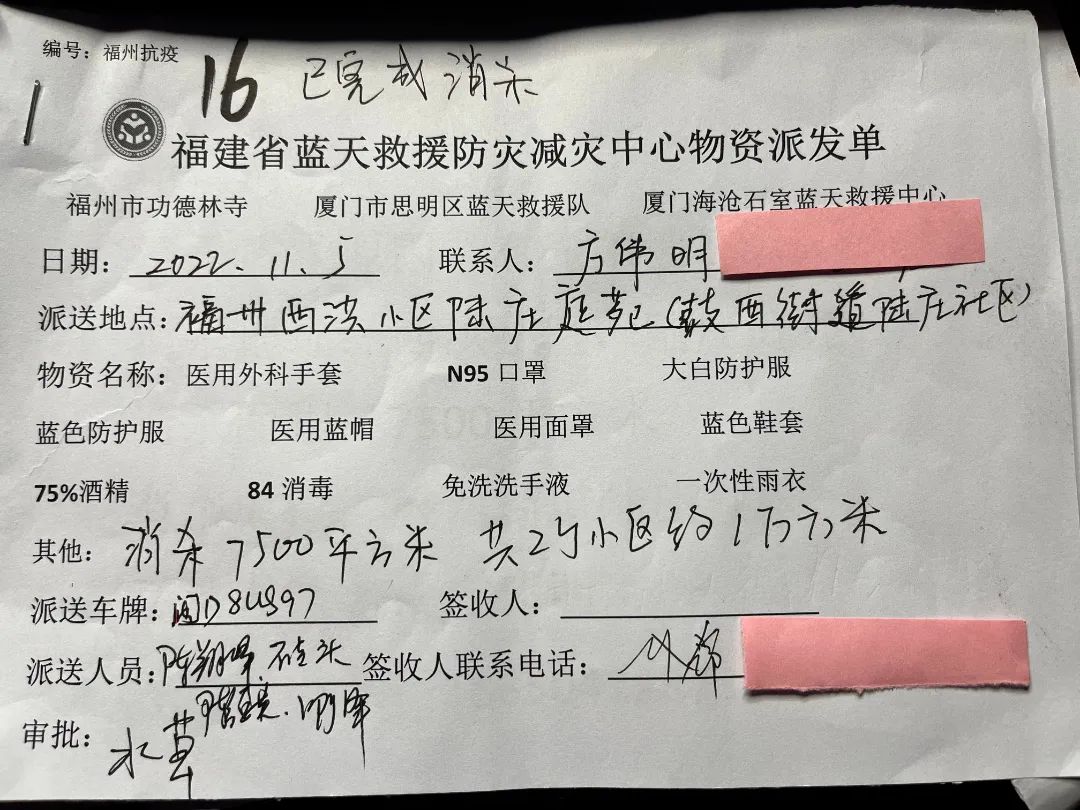 编号：福州抗疫 16 已完成消杀
福建省蓝天救援防灾减灾中心物资派发单
福州市功德林寺 厦门市思明区蓝天救援队 厦门海沧石室蓝天救援中心
日期： 2022.11.5 联系人： 方伟明
派送地点：福州西洪小区陆庄庭苑（鼓西街道陆庄社区）
物资名称：医用外科手套 N95 口罩 大白防护服
蓝色防护服 医用蓝帽 医用面罩 蓝色鞋套
75%酒精 84 消毒 免洗洗手液 一次性雨衣
其他： 消杀7500平方米 共2个小区约1万方米
派送车牌：闽D8U397 签收人：
派送人员： 石头 签收人联系电话：
审批：